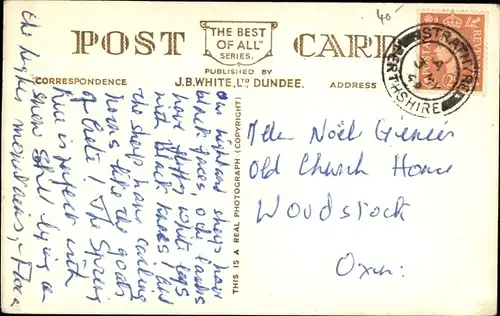 40
POST CARD
"THE BEST OF ALL" SERIES.
CORRESPONDENCE
PUBLISHED BY
J.B. WHITE, LTD DUNDEE.
ADDRESS
THIS IS A REAL PHOTOGRAPH (COPYRIGHT)
STRATHTYRE
PERTHSHIRE
REVENUE
Our highland sheep have
black faces, & the lambs
have fluffy white legs
with black knees! And
the sheep have curling
horns like the goats
of Crete! The Spring
here is perfect with
snow still lying on
the higher mountains,
Noël
Old Church House
Woodstock
Oxon: